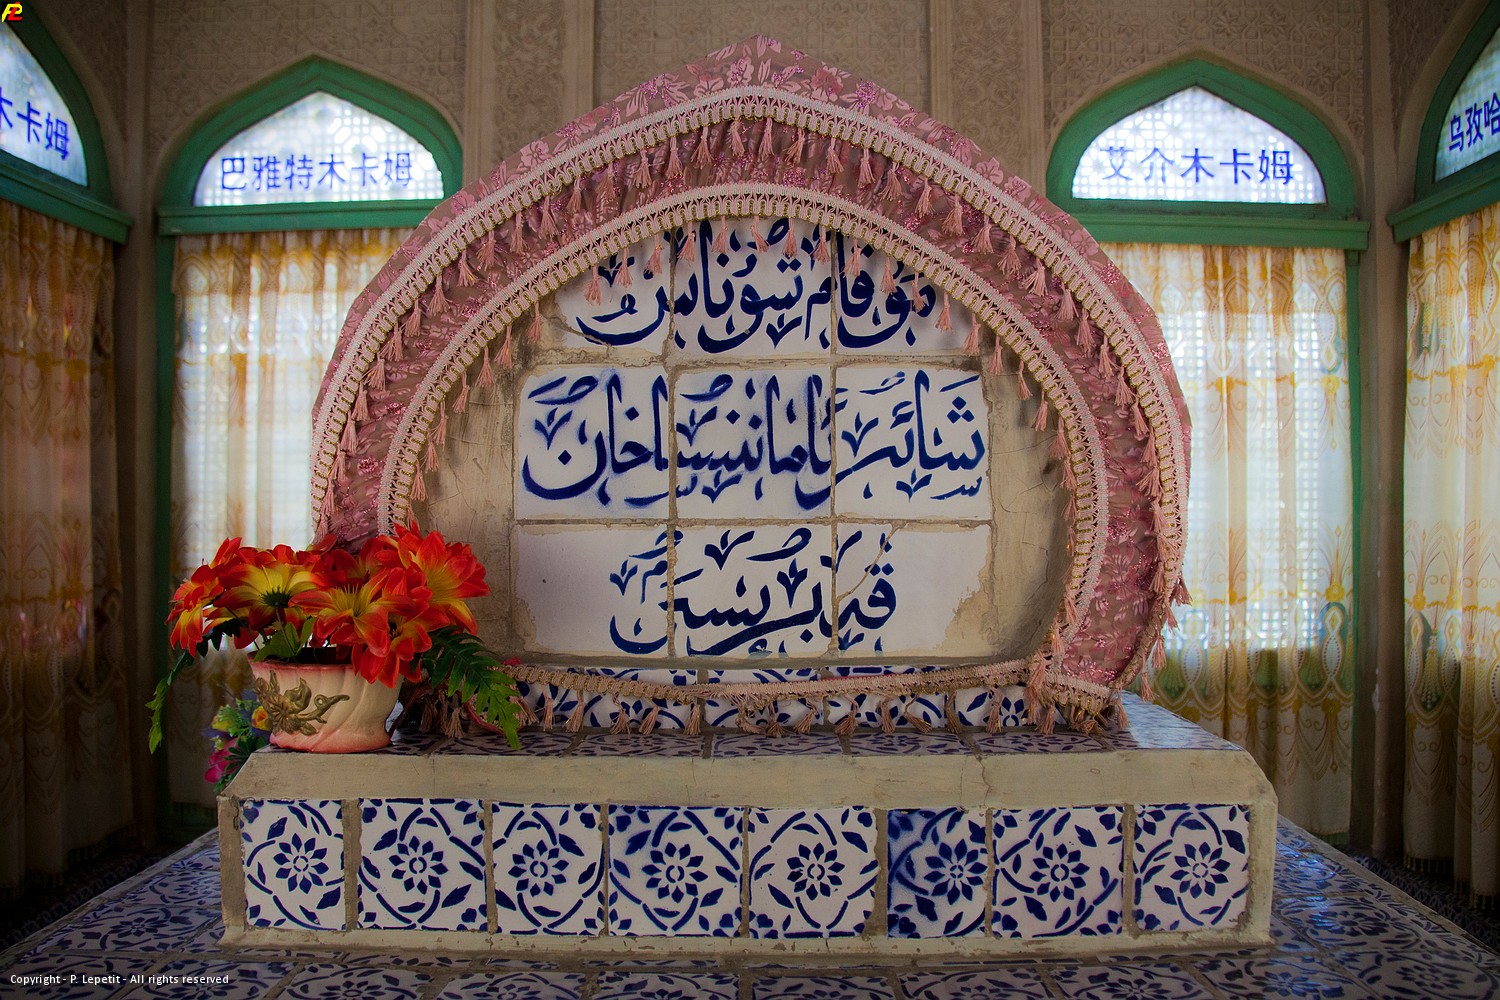 木卡姆
巴雅特木卡姆
艾介木卡姆
乌孜哈
مۇقام شۇناس
شائىر ئاماننىساخان
قەبرىسى
Copyright - P. Lepetit - All rights reserved